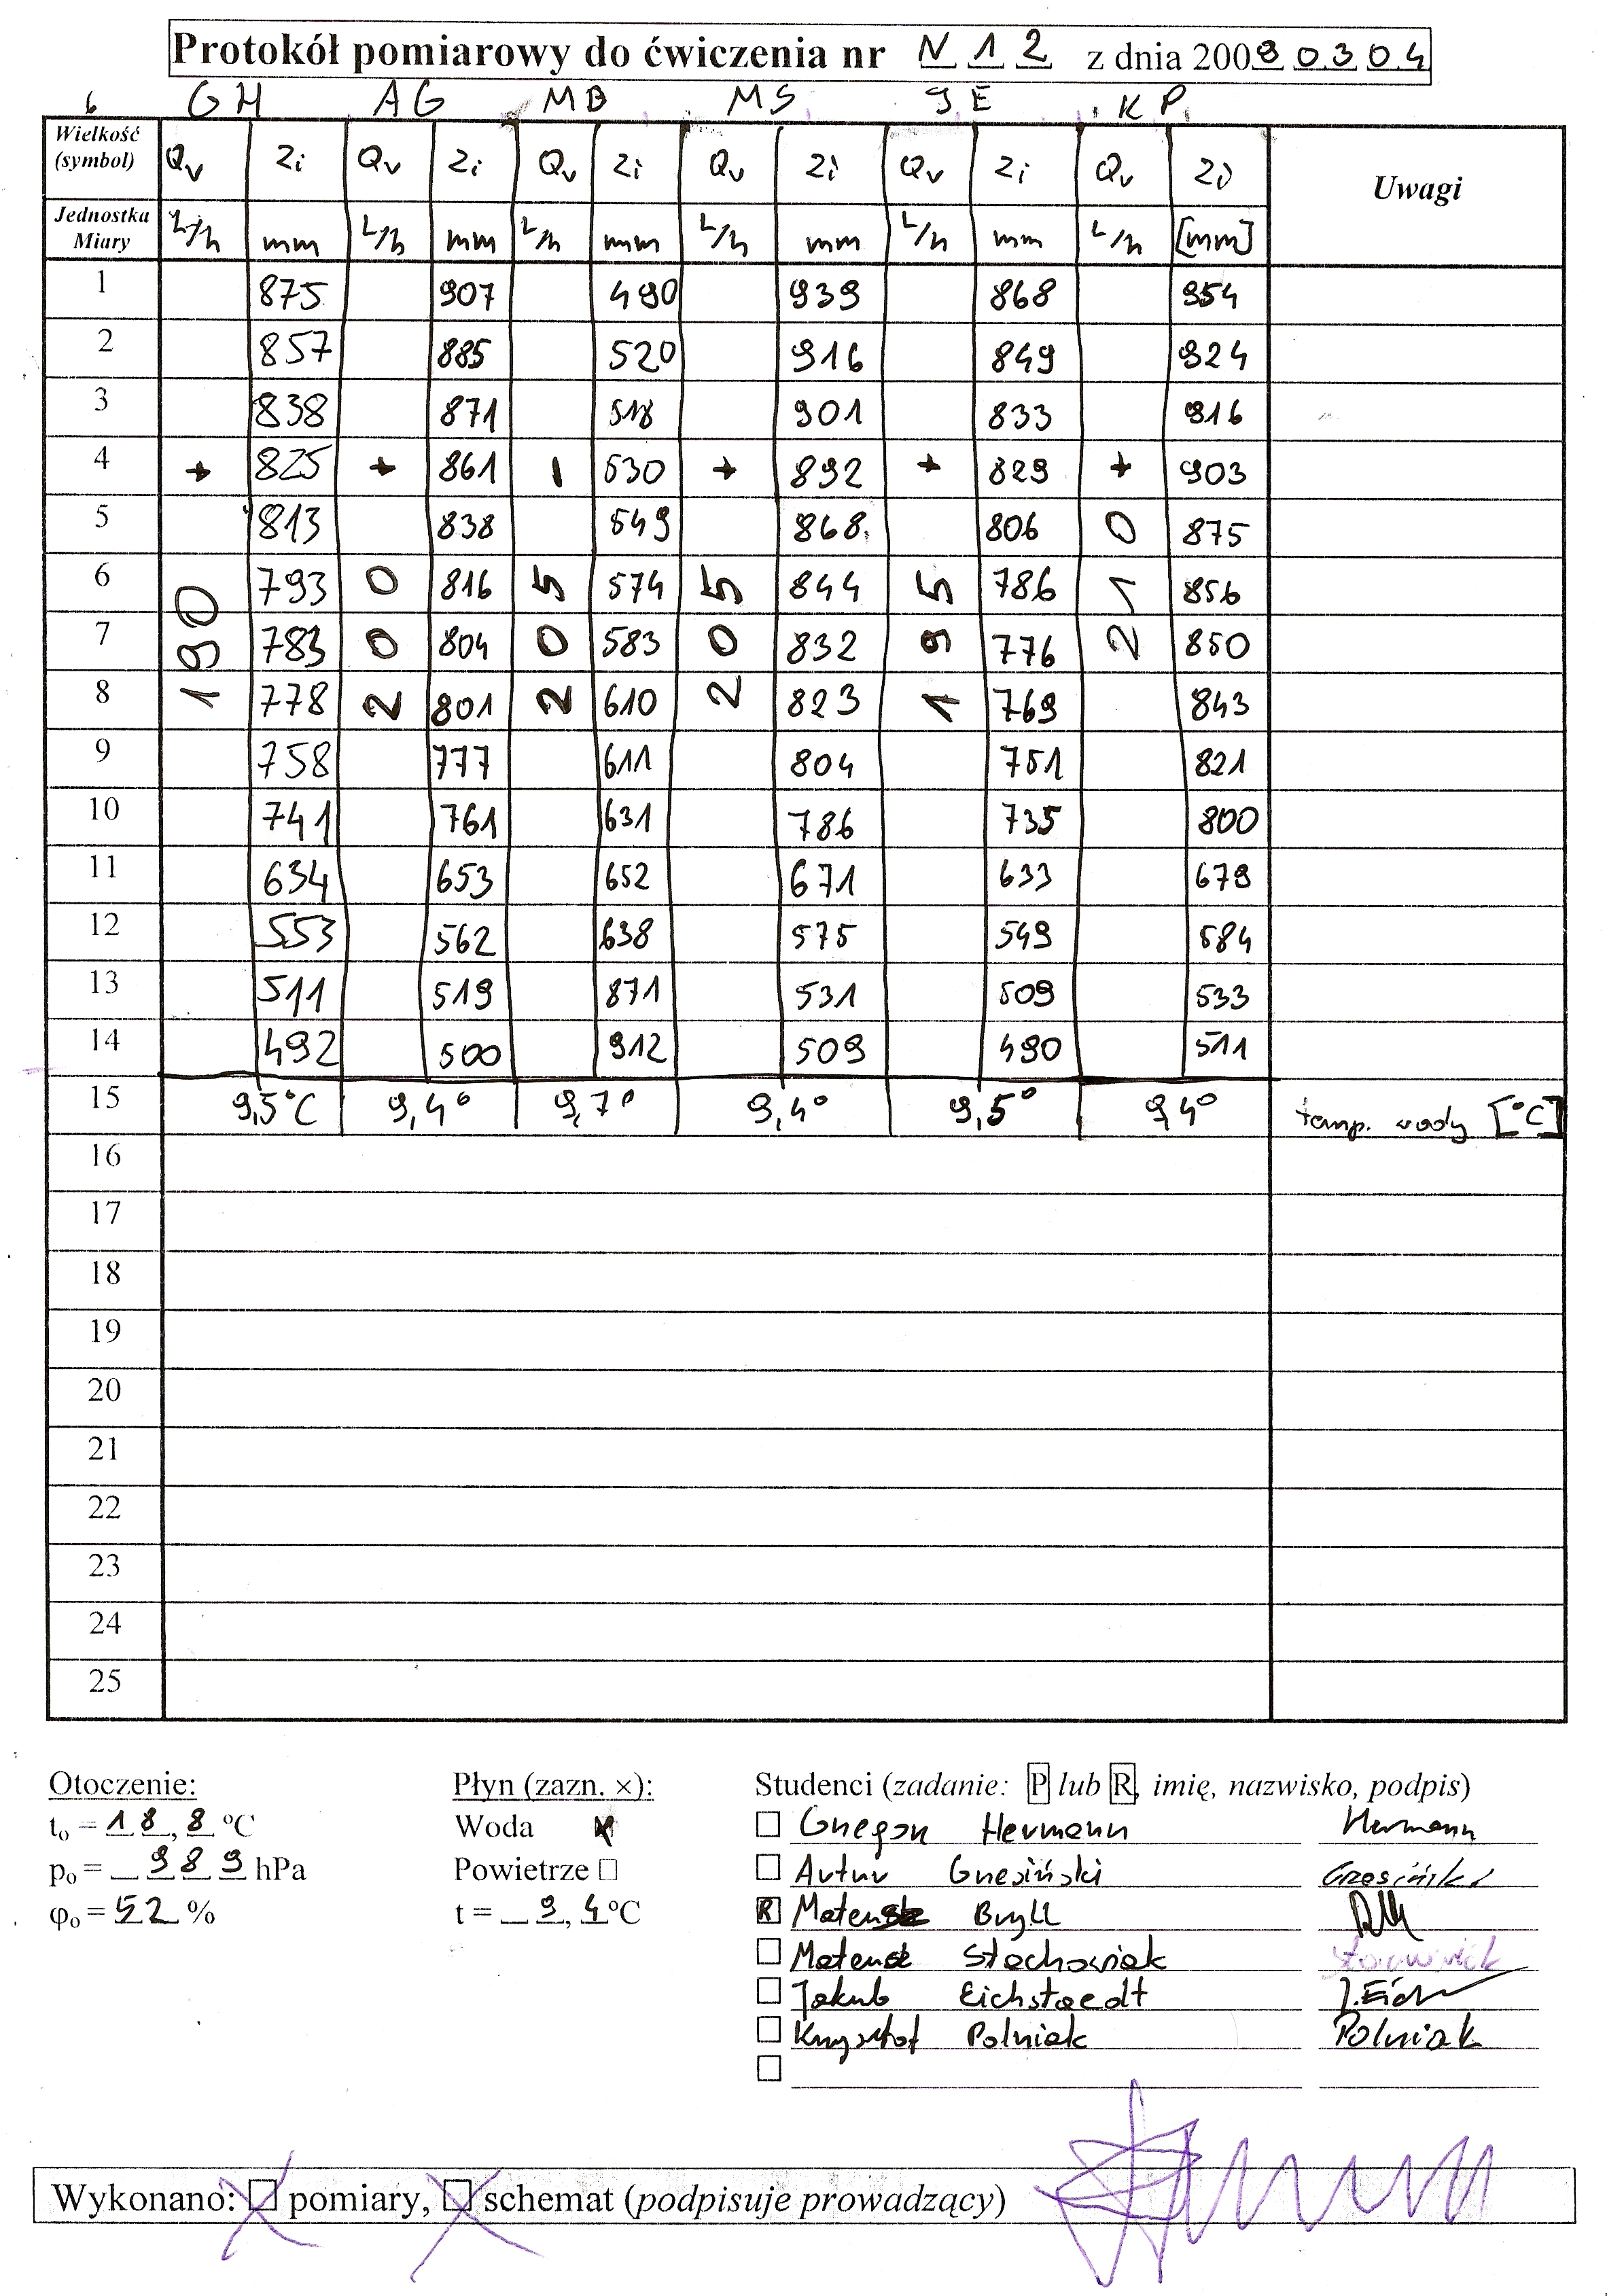 Protokół pomiarowy do ćwiczenia nr N 1 2 z dnia 200 9 0 3 0 4
6 GH AG MB MS JE KP
Wielkość (symbol) Qv Zi Qv Zi Qv Zi Qv Zi Qv Zi Qv Zi Uwagi
Jednostka Miary L/h mm L/h mm L/h mm L/h mm L/h mm L/h [mm]
1 875 907 490 939 868 954
2 857 885 520 916 849 924
3 838 871 518 901 833 916
4 + 825 + 861 - 530 + 892 + 829 + 903
5 813 838 549 868 806 875
6 793 816 574 844 786 856
7 783 804 583 832 776 850
8 190 778 200 801 205 610 205 823 195 769 210 843
9 758 777 611 804 751 821
10 741 761 631 786 735 800
11 634 653 652 671 633 679
12 553 562 638 575 549 584
13 511 519 871 531 509 533
14 492 500 912 509 490 511
15 9,5°C 9,4° 9,7° 9,4° 9,5° 9,4° temp. wody [°C]
16
17
18
19
20
21
22
23
24
25
Otoczenie: Płyn (zazn. ×): Studenci (zadanie: P lub R, imię, nazwisko, podpis)
to = 18,8 °C Woda x Gnegon Hermann Hermann
po = 989 hPa Powietrze Artur Gnesiński Grzesiński
φo = 52 % t = 9,4 °C R Mateusz Bryll
Mateusz Stachowiak Stachowiak
Jakub Eichstaedt J.Eich
Krzysztof Polniak Polniak
Wykonano: pomiary, schemat (podpisuje prowadzący)